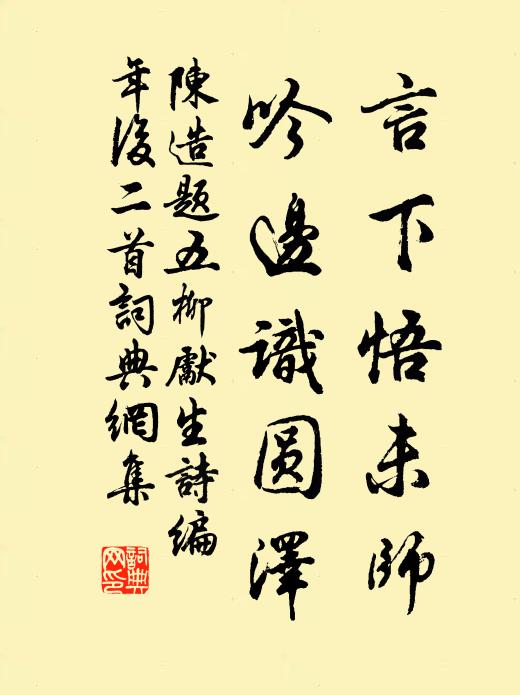 言下悟未師
吟邊識圓澤
陳造題五柳獻生詩编
年後二首詞典網集
詞典
网印